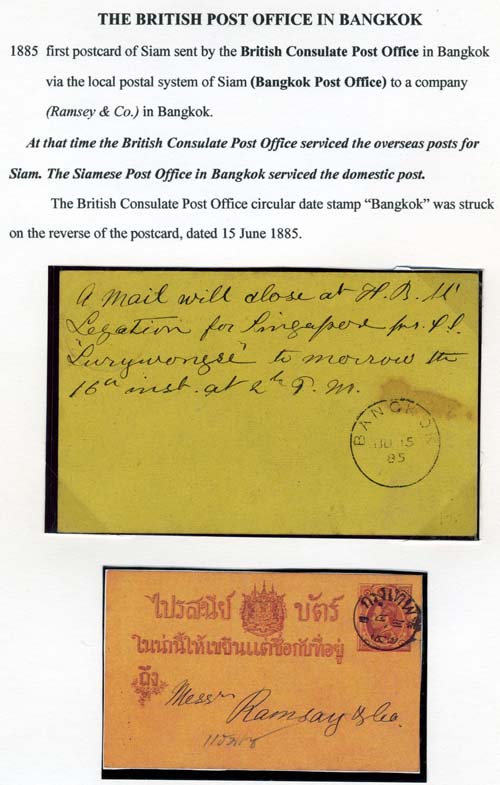 THE BRITISH POST OFFICE IN BANGKOK
1885 first postcard of Siam sent by the British Consulate Post Office in Bangkok
via the local postal system of Siam (Bangkok Post Office) to a company
(Ramsey & Co.) in Bangkok.
At that time the British Consulate Post Office serviced the overseas posts for
Siam. The Siamese Post Office in Bangkok serviced the domestic post.
The British Consulate Post Office circular date stamp “Bangkok” was struck
on the reverse of the postcard, dated 15 June 1885.
A Mail will close at H. B. M'
Legation for Singapore pr. S.S.
"Surywongse" to morrow the
16th inst. at 2 P. M.
BANGKOK
JU 15
85
ไปรสนีย์ บัตร์
ในน่านี้ให้เขียนแต่ชื่อกับที่อยู่
ถึง
Messrs
Ramsay & Co.